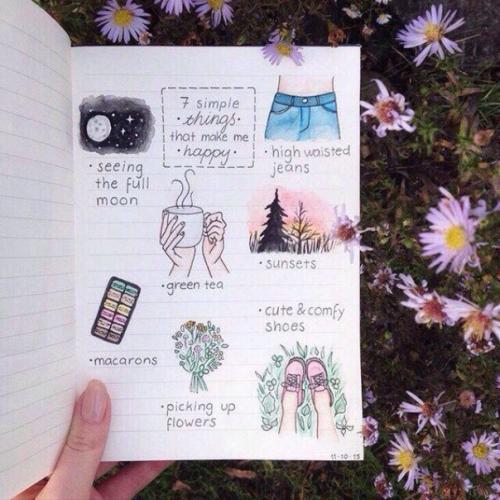 7 simple
• things •
that make me
• happy •
• seeing
the full
moon
• high waisted
jeans
• green tea
• sunsets
• macarons
• cute & comfy
shoes
• picking up
flowers
11-10-15